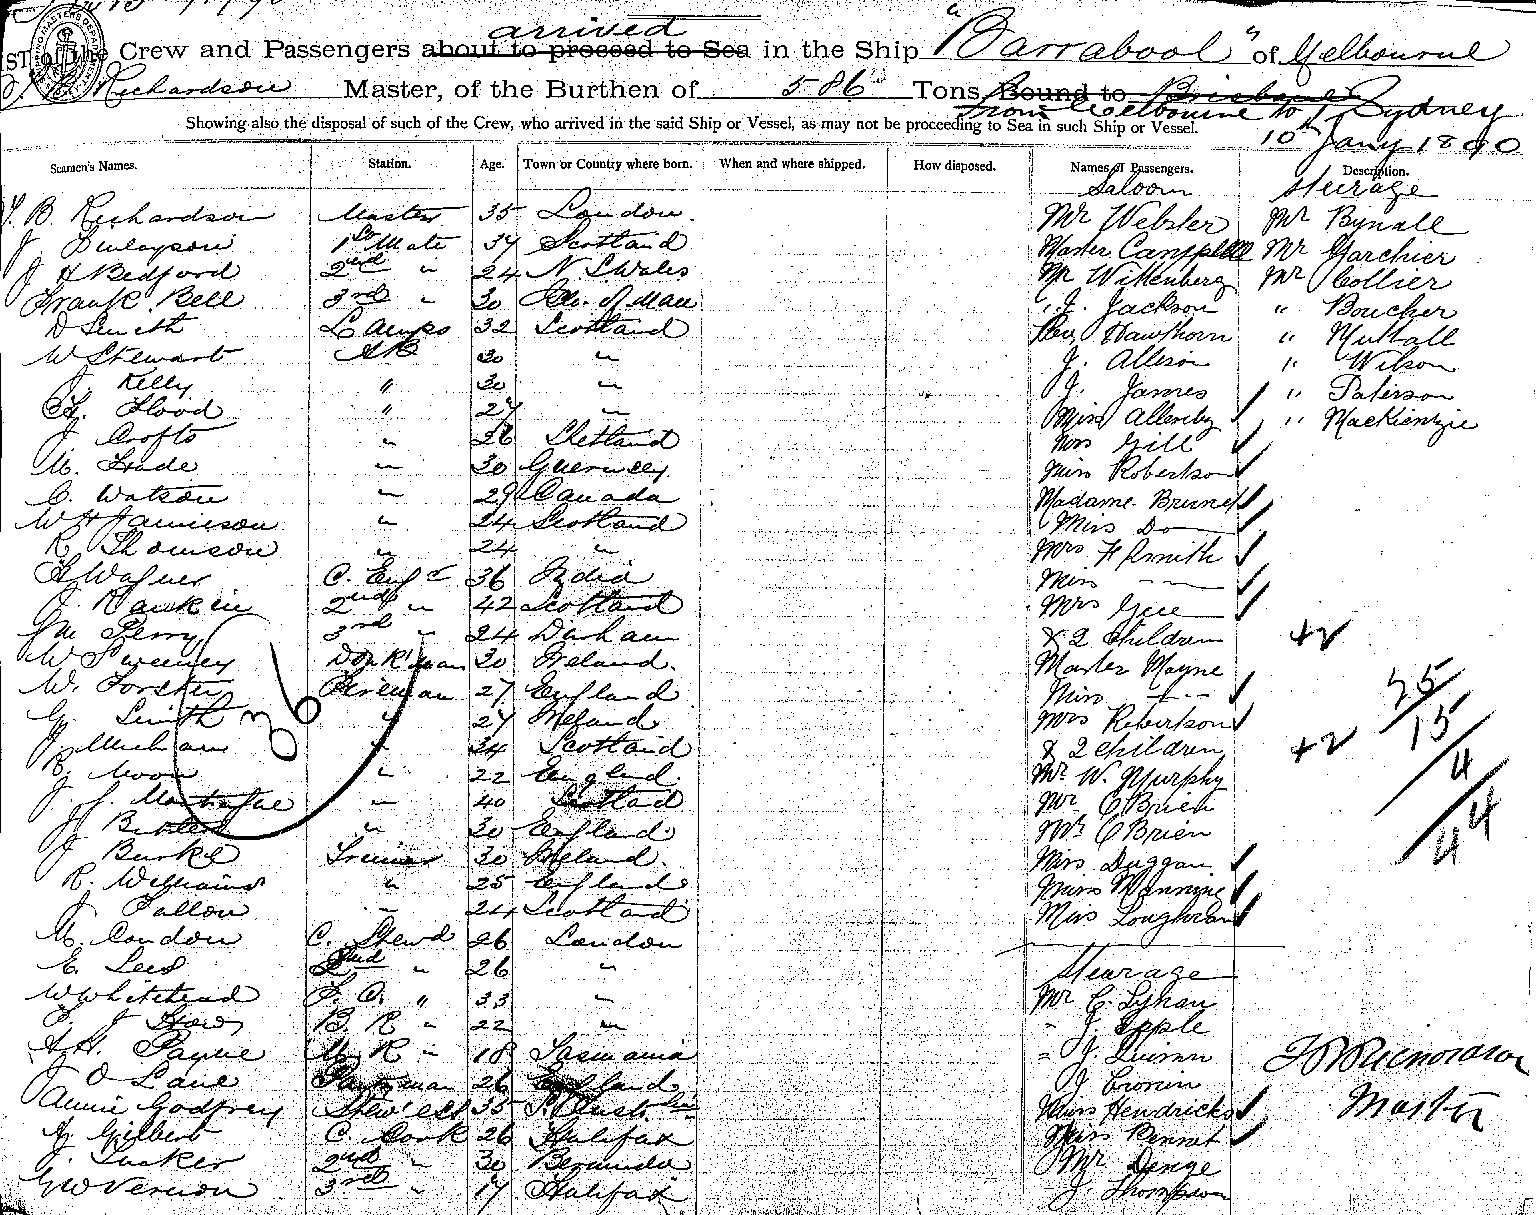 arrived
LIST of the Crew and Passengers about to proceed to Sea in the Ship "Barrabool" of Melbourne
Richardson Master, of the Burthen of 586 Tons Bound to Brisbane
from Melbourne to Sydney
Showing also the disposal of such of the Crew, who arrived in the said Ship or Vessel, as may not be proceeding to Sea in such Ship or Vessel.
10 Jany 1890
Seamen's Names. Station. Age. Town or Country where born. When and where shipped. How disposed. Names of Passengers. Description.
Saloon Steerage
B. Richardson Master 35 London. Mr Webster Mr Bynall
J Finlayson 1st Mate 34 Scotland Master Campbell Mr
J H Bedford 2nd " 24 N S Wales Mr Wittenberg Mr Collier
Frank Bell 3rd " 30 Isle of Man J. Jackson " Boucher
D Smith Lamps 32 Scotland Hawthorn " Nuttall
W Stewart AB 30 " J. Allison " Wilson
J. Kelly " 30 " J. James " Paterson
Flood " 27 " Miss Allenby " Mackienzie
J Crofts " 26 Shetland Mrs Gill
" 30 Guernsey Miss Robertson
C. Watson " 29 Canada Madame Brunel
W H Jamieson " 24 Scotland Miss Do
R Thomson " 24 " Mrs H Smith
Wagner C. Engr 36 India Miss "
J. Rankin 2nd " 42 Scotland Mrs Gee
Perry 3rd " 24 Durham & 2 Children +2
W Sweeney Donk'man 30 Ireland. Master Mayne
W. Forster Fireman 27 England Miss " 25
G. Smith " 27 Ireland Mrs Robertson 15
J. " 34 Scotland & 2 children +2 4
R Moon " 22 England. Mr W. Murphy
J. J. Montague " 40 Scotland Mr O'Brien 44
J Butler " 30 England Mrs O'Brien
J Burke Trimmer 30 Ireland. Miss Duggan
R. Williams " 25 England Miss Manning
J Fallon " 24 Scotland Miss Loughnan
M. Condon C. Stewd 26 London
E. Lees 2nd " 26 " Steerage
W Whitehead F. C. " 33 " Mr C. Lyhan
J B. R " 22 " " J. Apple
Payne M. R " 18 Tasmania " J. Quinn
J O Lane Pantryman 26 England J Cronin
Annie Godfrey Stew'ess 35 S. Australia Miss Hendricks Master
Gilbert C. Cook 26 Halifax Miss Bennet
J. Tucker 2nd " 30 Bermuda Mr Denge
G W Vernon 3rd " 17 Halifax J. Thompson
36